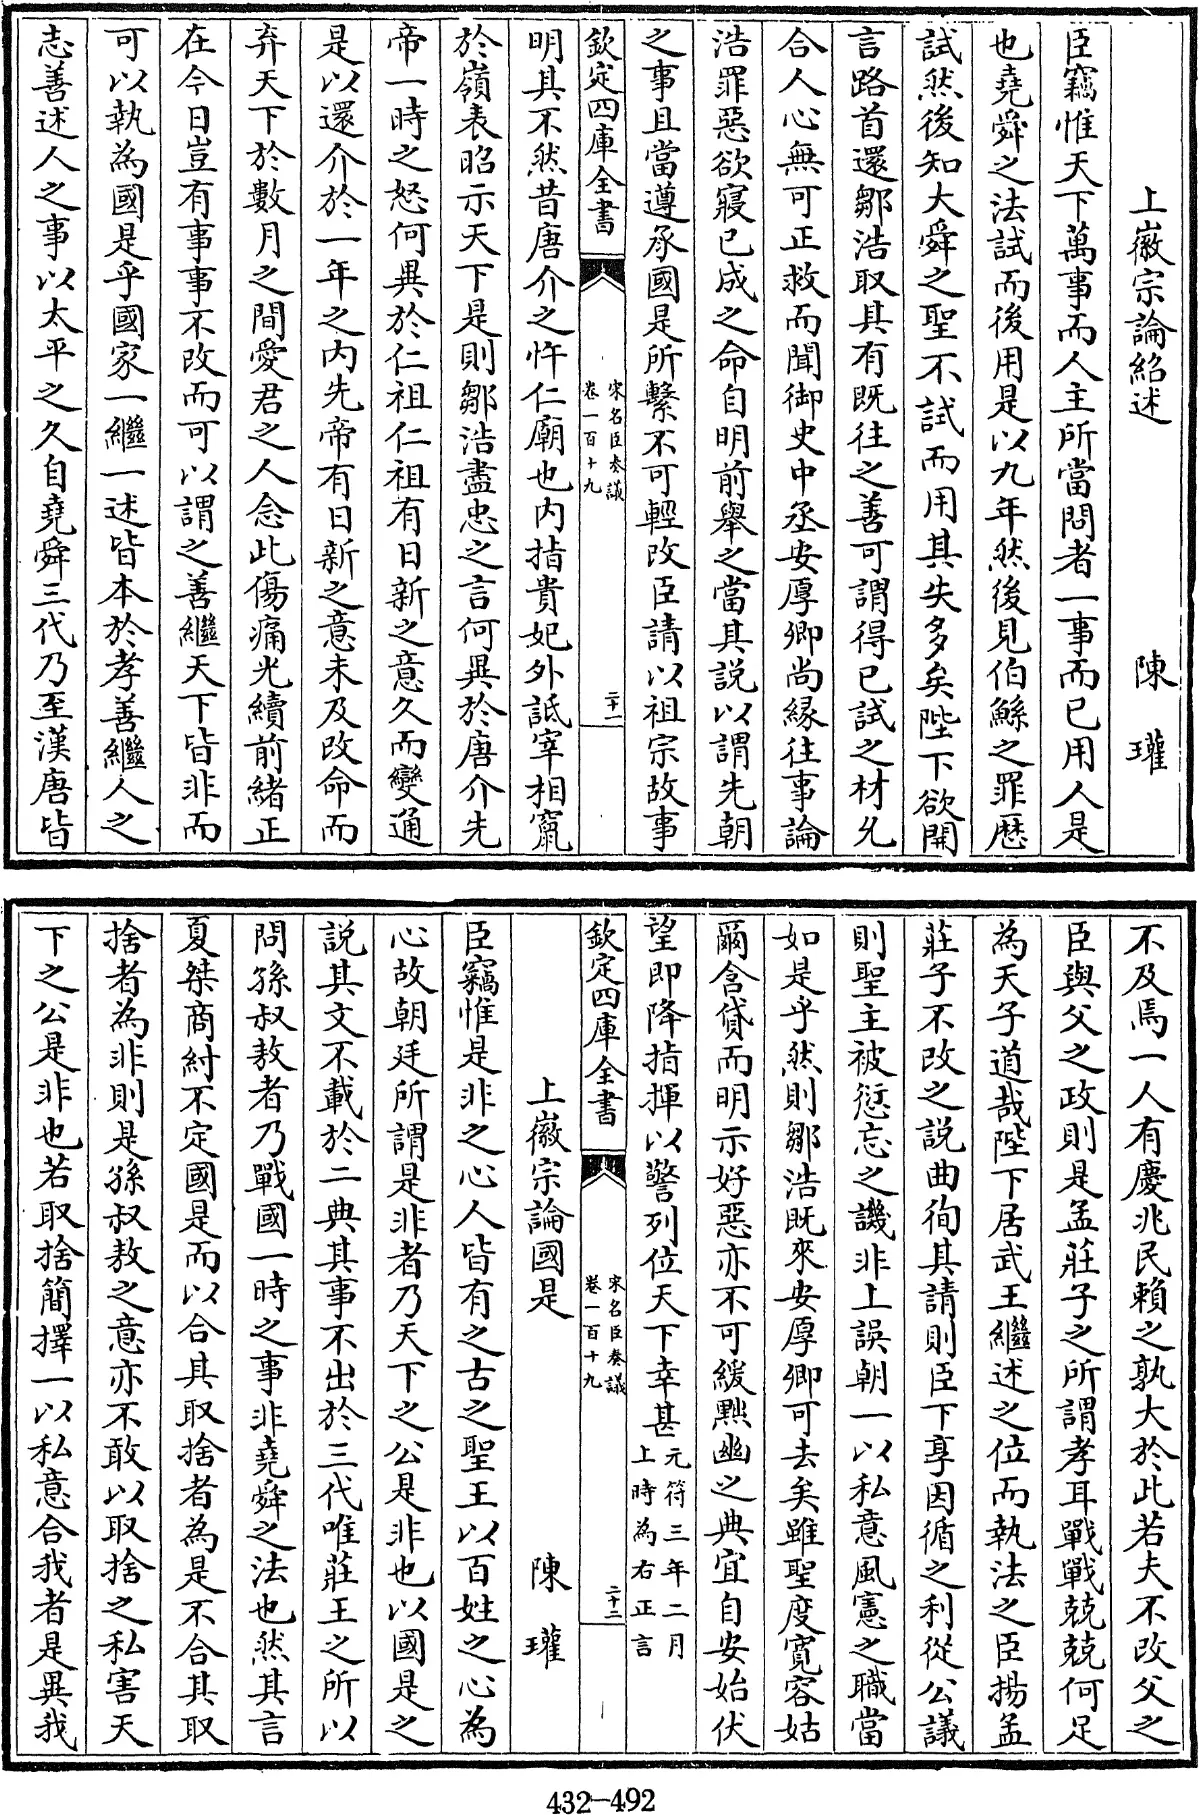 上徽宗論紹述　陳瓘
臣竊惟天下萬事而人主所當問者一事而已用人是
也堯舜之法試而後用是以九年然後見伯鯀之罪歴
試然後知大舜之聖不試而用其失多矣陛下欲開
言路首還鄒浩取其有既往之善可謂得已試之材允
合人心無可正救而聞御史中丞安厚卿尚縁往事論
浩罪惡欲寢已成之命自明前舉之當其説以謂先朝
之事且當遵承國是所繫不可輕改臣請以祖宗故事
欽定四庫全書　宋名臣奏議　卷一百十九　二十一
明其不然昔唐介之忤仁廟也内指貴妃外詆宰相竄
於嶺表昭示天下是則鄒浩盡忠之言何異於唐介先
帝一時之怒何異於仁祖仁祖有日新之意久而變通
是以還介於一年之内先帝有日新之意未及改命而
弃天下於數月之間愛君之人念此傷痛光續前緒正
在今日豈有事事不改而可以謂之善繼天下皆非而
可以執為國是乎國家一繼一述皆本於孝善繼人之
志善述人之事以太平之久自堯舜三代乃至漢唐皆
不及焉一人有慶兆民賴之孰大於此若夫不改父之
臣與父之政則是孟莊子之所謂孝耳戰戰兢兢何足
為天子道哉陛下居武王繼述之位而執法之臣揚孟
莊子不改之説曲徇其請則臣下享因循之利從公議
則聖主被愆忘之譏非上誤朝一以私意風憲之職當
如是乎然則鄒浩既來安厚卿可去矣雖聖度寛容姑
爾含貸而明示好惡亦不可緩黜幽之典宜自安始伏
望即降指揮以警列位天下幸甚元符三年二月上時為右正言
欽定四庫全書　宋名臣奏議　卷一百十九　二十二
上徽宗論國是　陳瓘
臣竊惟是非之心人皆有之古之聖王以百姓之心為
心故朝廷所謂是非者乃天下之公是非也以國是之
説其文不載於二典其事不出於三代唯莊王之所以
問孫叔敖者乃戰國一時之事非堯舜之法也然其言
夏桀商紂不定國是而以合其取捨者為是不合其取
捨者為非則是孫叔敖之意亦不敢以取捨之私害天
下之公是非也若取捨簡擇一以私意合我者是異我
432-492